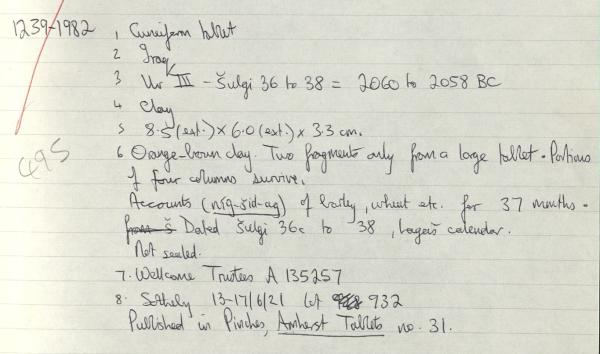 1239-1982 1 Cuneiform tablet
2 Iraq
3 Ur III - Šulgi 36 to 38 = 2060 to 2058 BC
4 Clay
5 8.5 (ext.) × 6.0 (ext.) × 3.3 cm.
495 6 Orange-brown clay. Two fragments only from a large tablet. Portions
of four columns survive.
Accounts (níg-šid-ag) of barley, wheat etc. for 37 months.
from Š Dated Šulgi 36c to 38, Lagaš calendar.
Not sealed.
7. Wellcome Trustees A 135257
8. Sotheby 13-17/6/21 lot 932
Published in Pinches, Amherst Tablets no. 31.